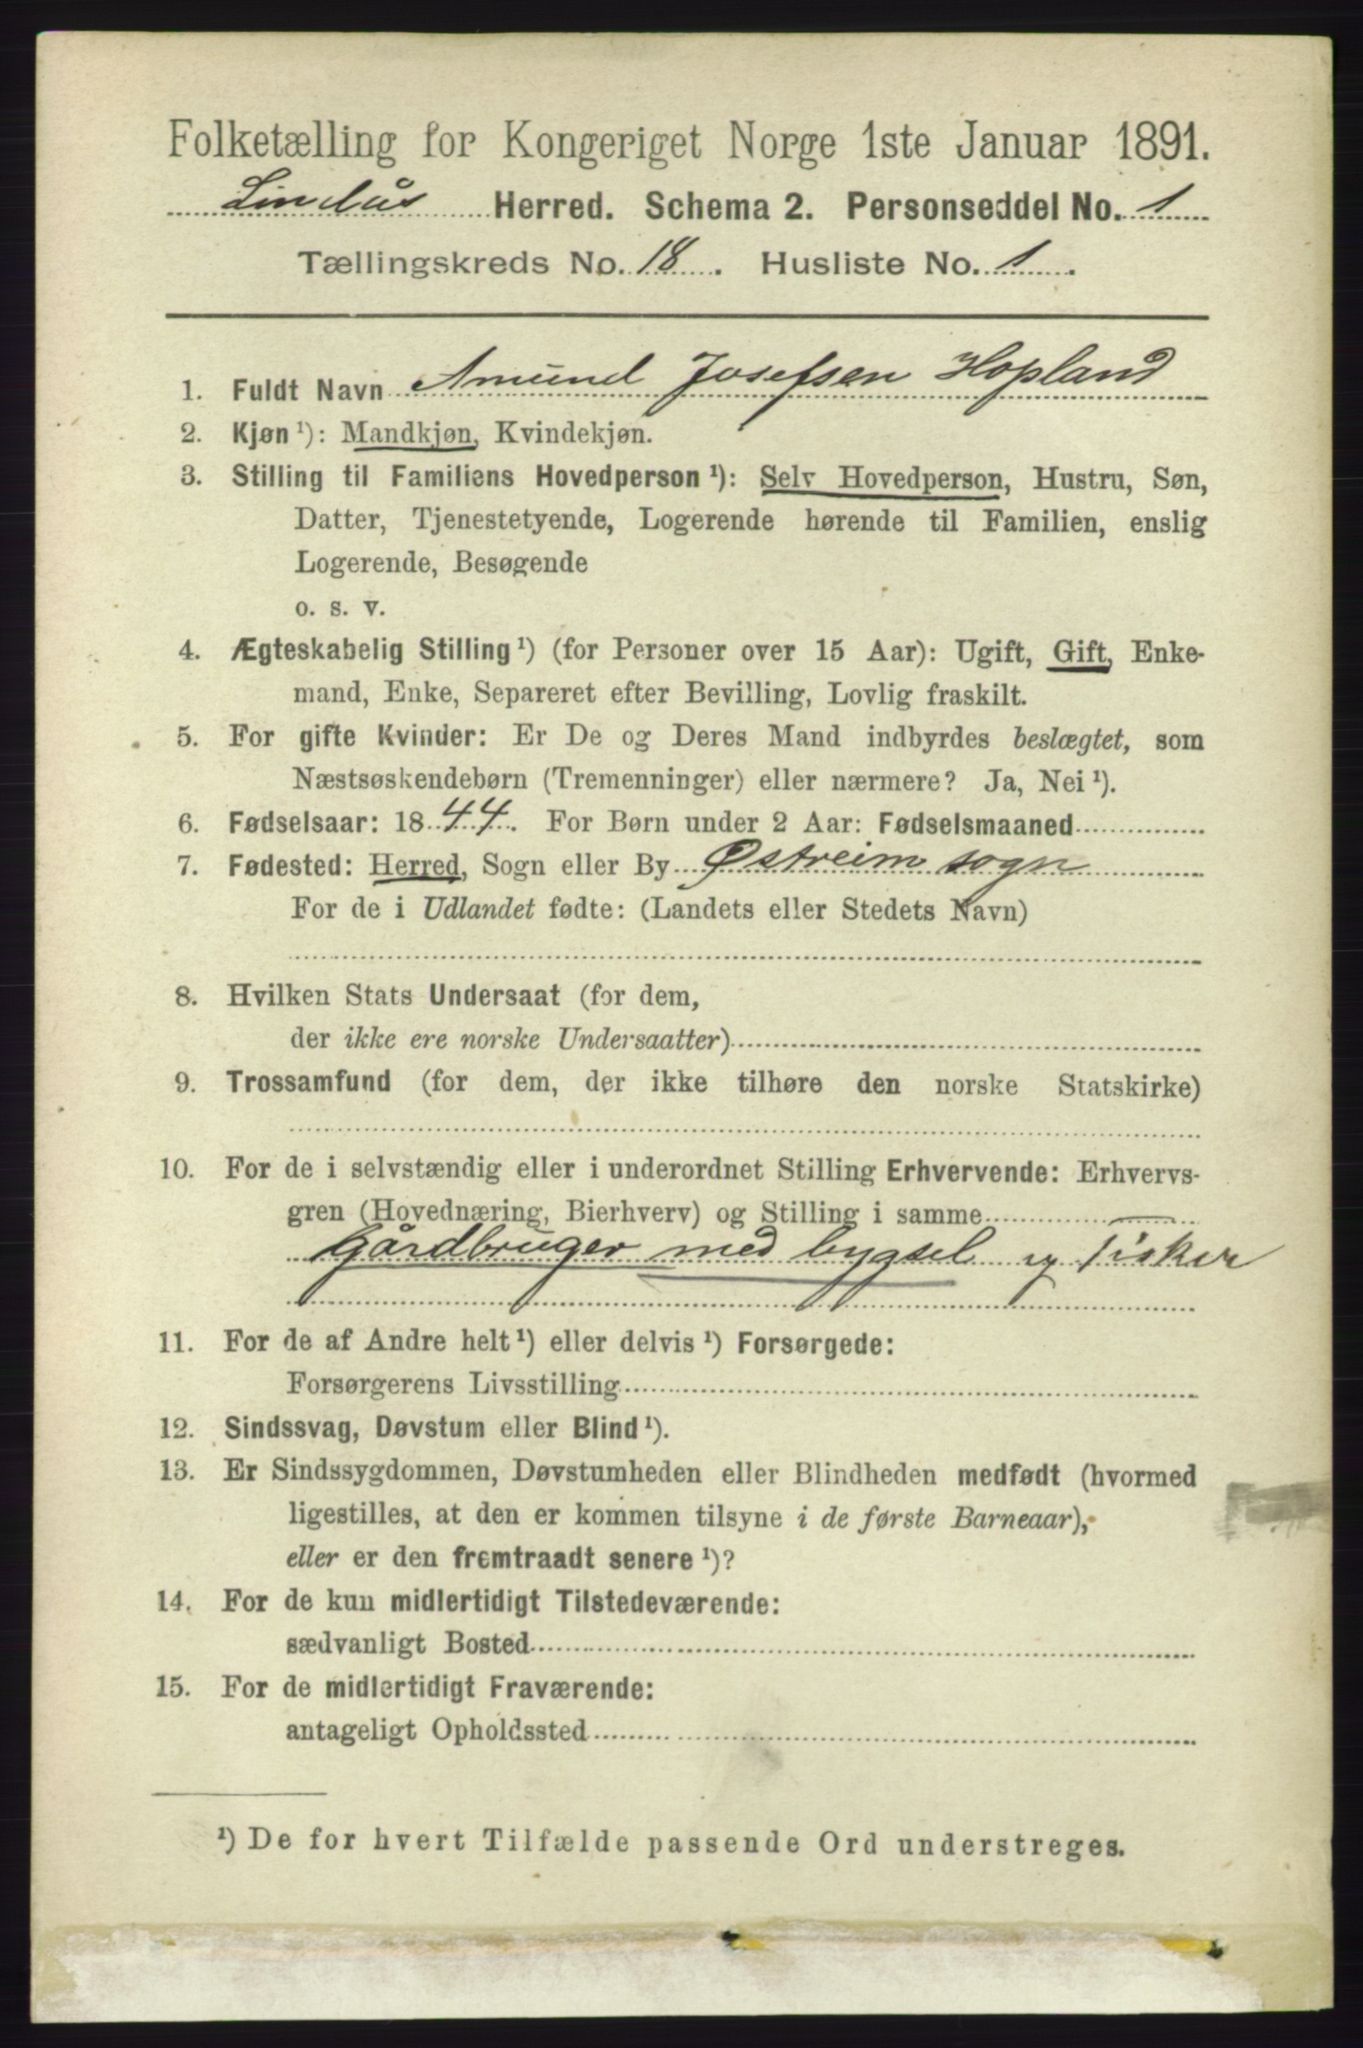 Folketælling for Kongeriget Norge 1ste Januar 1891.
Lindås Herred. Schema 2. Personseddel No. 1
Tællingskreds No. 18. Husliste No. 1.
1. Fuldt Navn Amund Josefsen Hopland
2. Kjøn ¹): Mandkjøn, Kvindekjøn.
3. Stilling til Familiens Hovedperson ¹): Selv Hovedperson, Hustru, Søn,
Datter, Tjenestetyende, Logerende hørende til Familien, enslig
Logerende, Besøgende
o. s. v.
4. Ægteskabelig Stilling ¹) (for Personer over 15 Aar): Ugift, Gift, Enke-
mand, Enke, Separeret efter Bevilling, Lovlig fraskilt.
5. For gifte Kvinder: Er De og Deres Mand indbyrdes beslægtet, som
Næstsøskendebørn (Tremenninger) eller nærmere? Ja, Nei ¹).
6. Fødselsaar: 1844. For Børn under 2 Aar: Fødselsmaaned
7. Fødested: Herred, Sogn eller By Østreim sogn
For de i Udlandet fødte: (Landets eller Stedets Navn)
8. Hvilken Stats Undersaat (for dem,
der ikke ere norske Undersaatter)
9. Trossamfund (for dem, der ikke tilhøre den norske Statskirke)
10. For de i selvstændig eller i underordnet Stilling Erhvervende: Erhvervs-
gren (Hovednæring, Bierhverv) og Stilling i samme
Gårdbruger med bygsel og Fisker
11. For de af Andre helt ¹) eller delvis ¹) Forsørgede:
Forsørgerens Livsstilling
12. Sindssvag, Døvstum eller Blind ¹).
13. Er Sindssygdommen, Døvstumheden eller Blindheden medfødt (hvormed
ligestilles, at den er kommen tilsyne i de første Barneaar),
eller er den fremtraadt senere ¹)?
14. For de kun midlertidigt Tilstedeværende:
sædvanligt Bosted
15. For de midlertidigt Fraværende:
antageligt Opholdssted
¹) De for hvert Tilfælde passende Ord understreges.